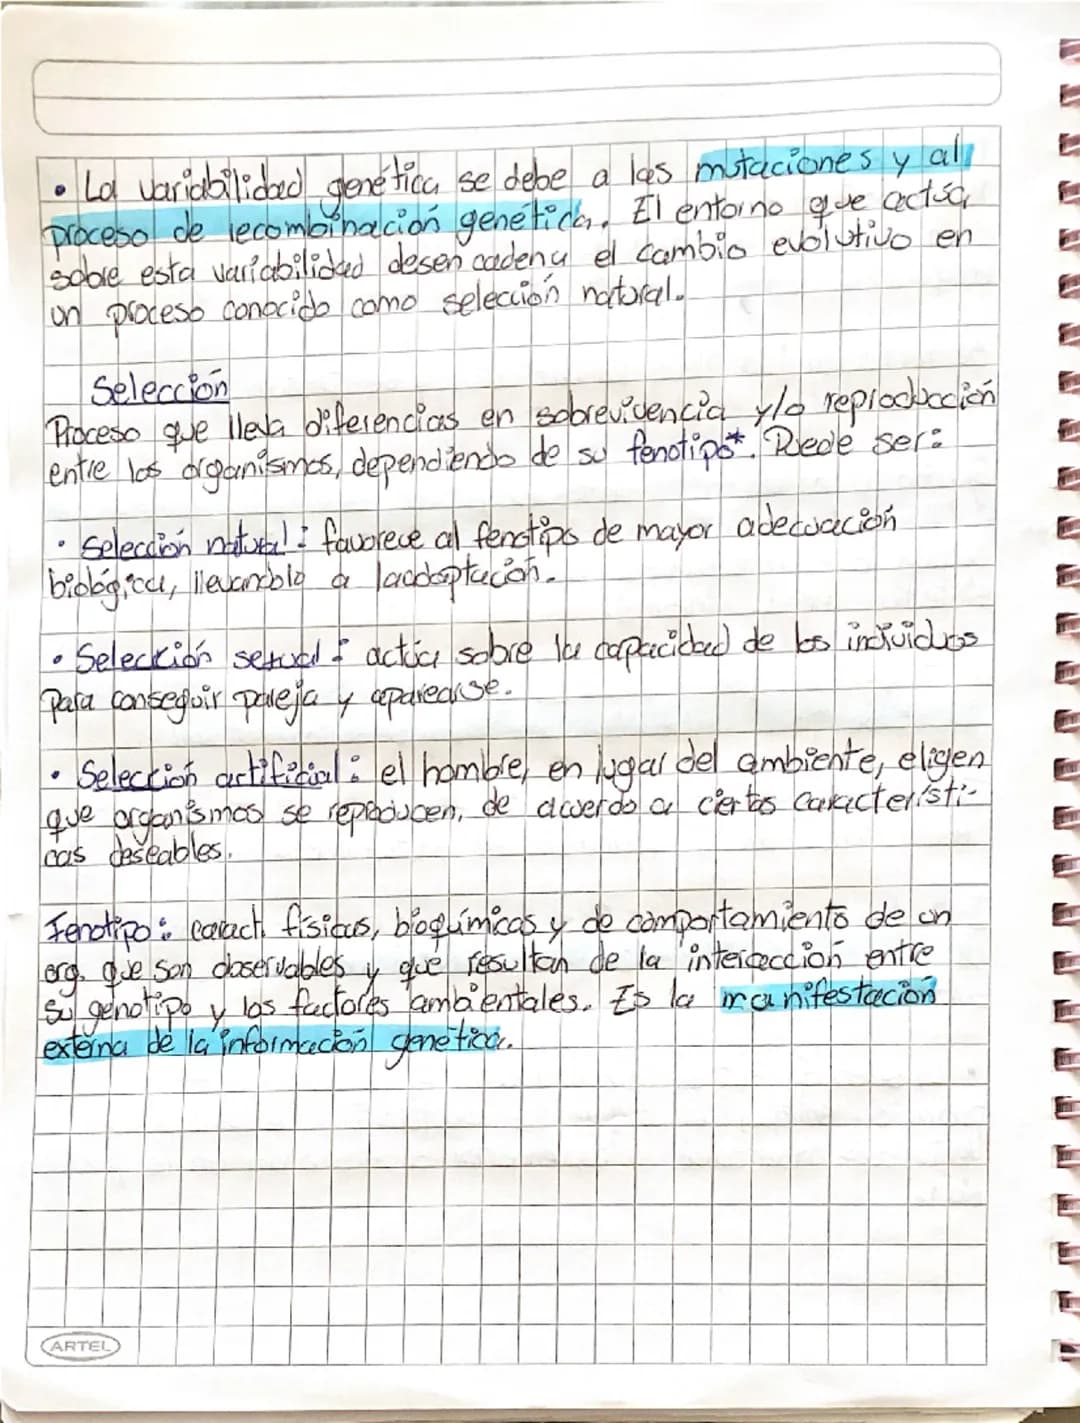 • La variabilidad genética se debe a las mutaciones y al
proceso de recombinación genética. El entorno que actúa
sobre esta variabilidad desencadena el cambio evolutivo en
un proceso conocido como selección natural.
Selección
Proceso que lleva diferencias en sobrevivencia y/o reproducción
entre los organismos, dependiendo de su fenotipo*. Puede ser:
• Selección natural: favorece al fenotipo de mayor adecuación
biológica, llevandolo a laadaptación.
• Selección sexual: actúa sobre la capacidad de los individuos
para conseguir pareja y aparearse.
• Selección artificial: el hombre, en lugar del ambiente, eligen
que organismos se reproducen, de acuerdo a ciertas característi-
cas deseables.
Fenotipo: caract. físicas, bioquímicas y de comportamiento de un
org. que son observables y que resultan de la interacción entre
su genotipo y los factores ambientales. Es la manifestación
externa de la información genética.
ARTEL